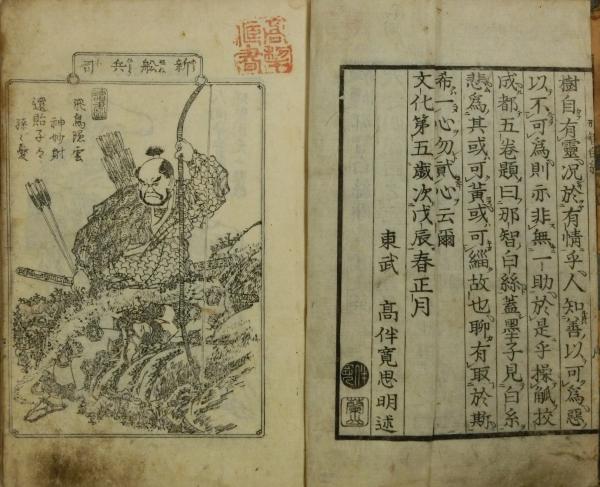 樹自有靈况於有情乎人知善以可為惡
以不可為則亦非無一助於是乎操觚挍
成都五卷題曰那智白絲蓋墨子見白糸
悲為其或可黃或可緇故也聊有取於斯
希一心勿貳心云爾
文化第五歲次戊辰春正月
東武 高伴寛思明述
新舩兵司
飛鳥隠雲
神妙射
還貽子々
孫々憂